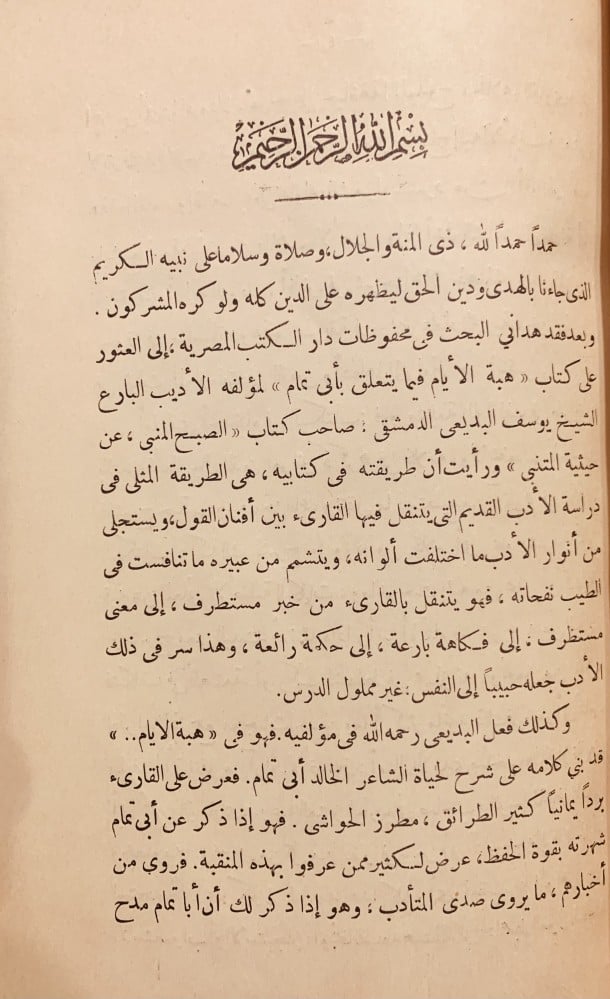 بسم الله الرحمن الرحيم
حمداً حمداً لله ، ذى المنة والجلال، وصلاة وسلاما على نبيه الكريم
الذى جاءنا بالهدى ودين الحق ليظهره على الدين كله ولو كره المشركون .
وبعد فقد هدانى البحث فى محفوظات دار الكتب المصرية ، إلى العثور
على كتاب « هبة الأيام فيما يتعلق بأبى تمام » لمؤلفه الأديب البارع
الشيخ يوسف البديعى الدمشقى ; صاحب كتاب « الصبح المنبى ، عن
حيثية المتنبى » ورأيت أن طريقته فى كتابيه ، هى الطريقة المثلى فى
دراسة الأدب القديم التى يتنقل فيها القارىء بين أفنان القول، ويستجلى
من أنوار الأدب ما اختلفت ألوانه، ويتشمم من عبيره ما تنافست فى
الطيب نفحاته ، فهو يتنقل بالقارىء من خبر مستطرف ، إلى معنى
مستظرف ، إلى فكاهة بارعة ، إلى حكمة رائعة ، وهذا سر فى ذلك
الأدب جعله حبيباً إلى النفس، غير مملول الدرس.
وكذلك فعل البديعى رحمه الله فى مؤلفيه. فهو فى « هبة الايام.. »
قد بنى كلامه على شرح لحياة الشاعر الخالد أبى تمام. فعرض على القارىء
برداً يمانياً كثير الطرائق ، مطرز الحواشى . فهو إذا ذكر عن أبى تمام
شهرته بقوة الحفظ، عرض لكثير ممن عرفوا بهذه المنقبة. فروى من
أخبارهم ، ما يروى صدى المتأدب ، وهو إذا ذكر لك أن أبا تمام مدح